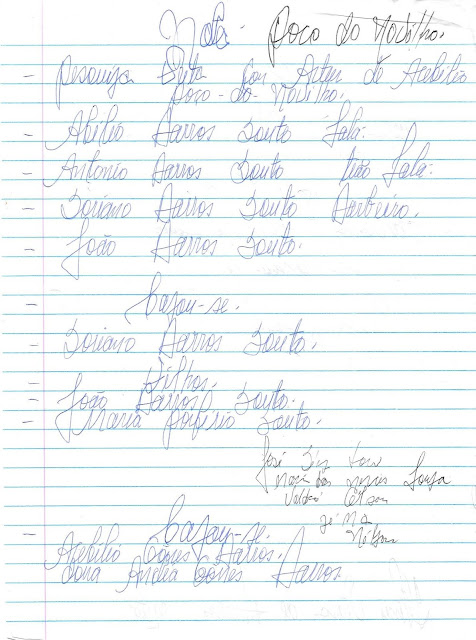 Nota. Poço do Novilho.
- Pesquiza Feita por Artur de Acebilio
Poço-do-Novilho.
- Abilio Barros Souto Fala.
- Antonio Barros Souto Tião Fala.
- Soriano Barros Souto Barbeiro.
- João Barros Souto.
- Casou-se.
- Soriano Barros Souto.
- Filhos.
- João Barros Souto.
- Maria Porfirio Souto.
José
Maria das Neves Souza
- Casou-se.
Acebilio Gomes Barros.
Dona Amelia Gomes Barros.